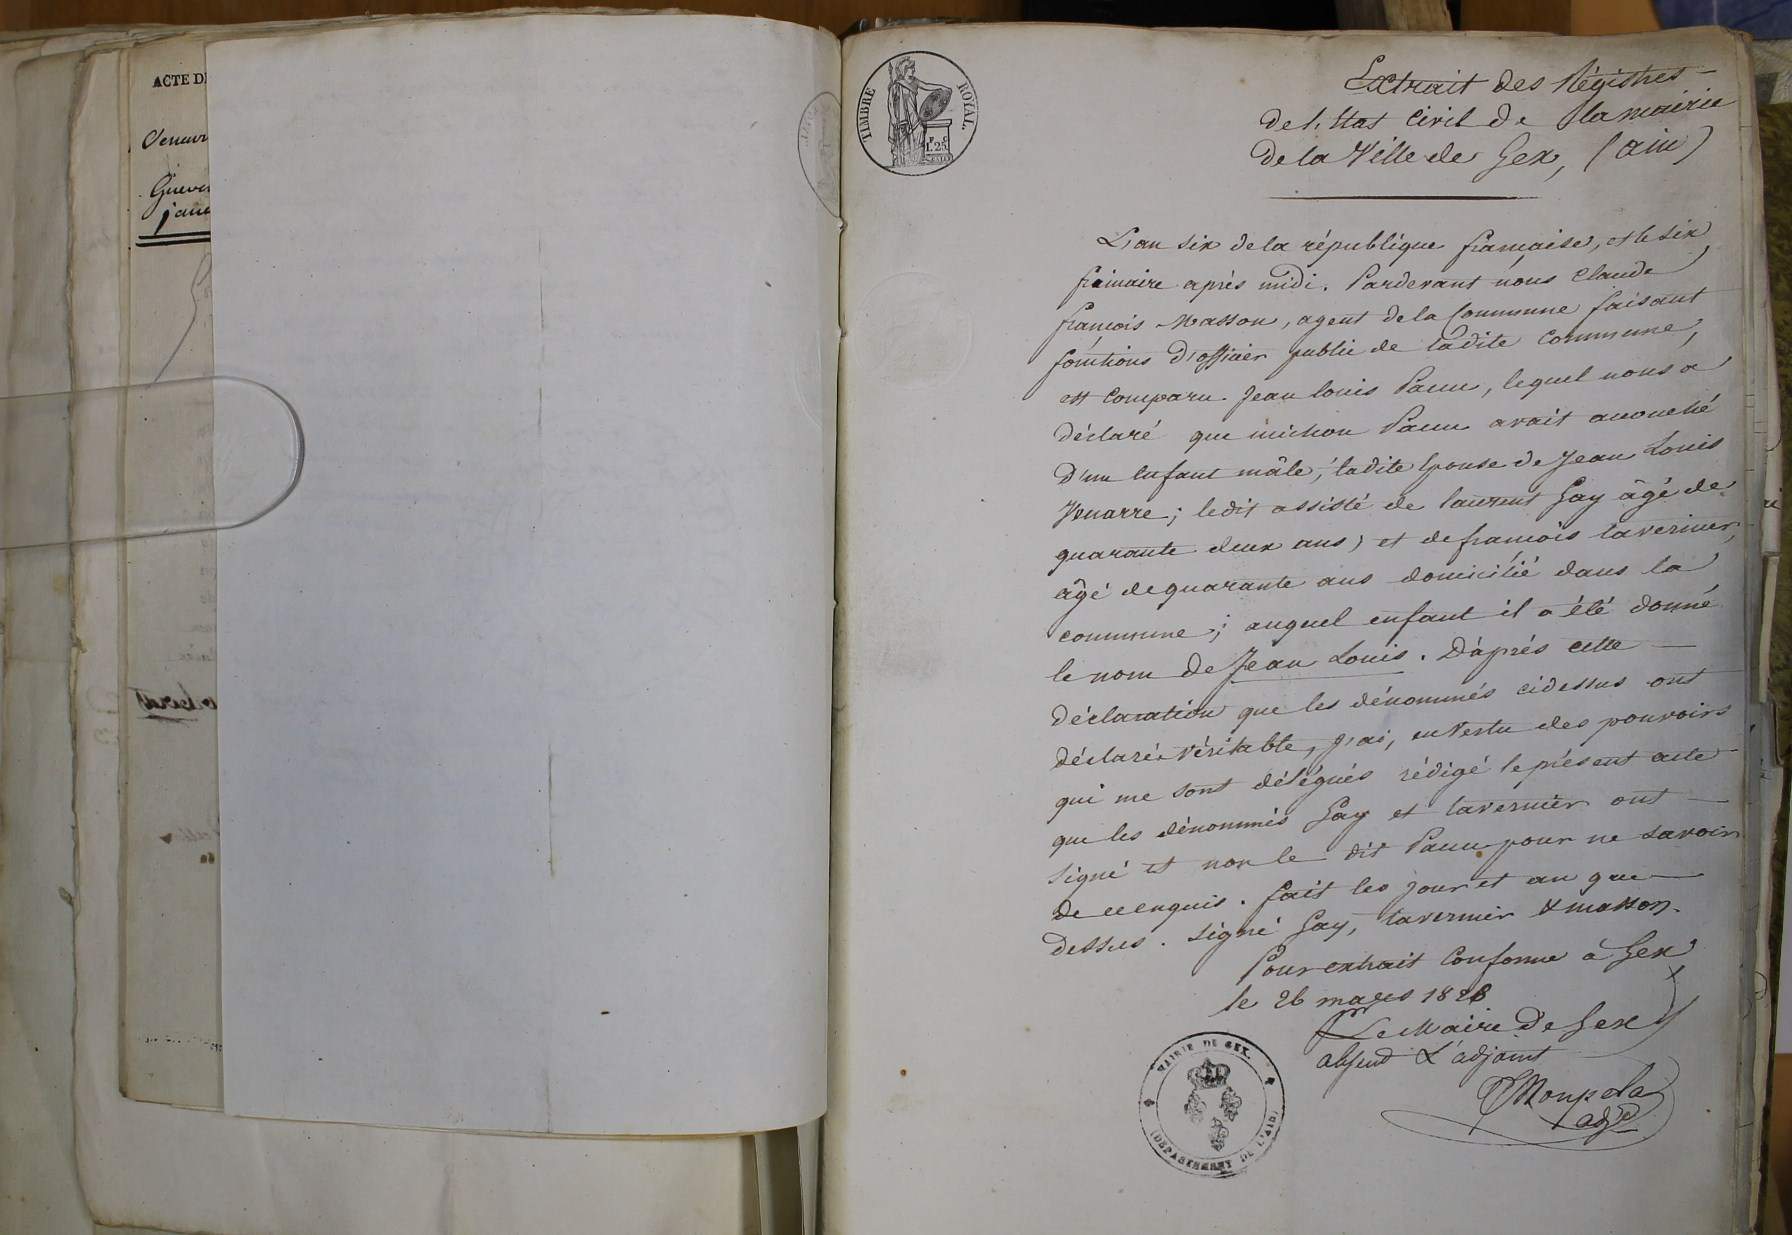 ACTE D
Guever
janv
TIMBRE ROYAL.
1.25
Extrait des Régistres
de l'Etat Civil de la mairie
de la Ville de Gex, (ain)
L'an six de la république française, et le six
frimaire après midi. Pardevant nous Claude
françois Masson, agent de la Commune faisant
fonctions d'officier public de ladite Commune,
est comparu Jean louis Pacun, lequel nous a
déclaré que michon Pacun avait accouché
d'un Enfant mâle, ladite Epouse de Jean Louis
Venarre; ledit assisté de laurent Gay âgé de
quarante deux ans, et de francois tavernier,
âgé de quarante ans domicilié dans la
commune; auquel enfant il a été donné
le nom de Jean Louis. D'après cette
déclaration que les dénommés cidessus ont
déclaré véritable, j'ai, en vertu des pouvoirs
qui me sont délégués rédigé le présent acte
que les dénommés Gay et tavernier ont
signé et non le dit Pacun pour ne savoir
de ce enquis. fait les jour et an que
dessus. signé Gay, tavernier & masson.
Pour extrait Conforme à Gex
le 26 mars 1828
Le Maire de Gex
absend L'adjoint
adjt
MAIRIE DE GEX.
(DEPARTEMENT DE L'AIN)